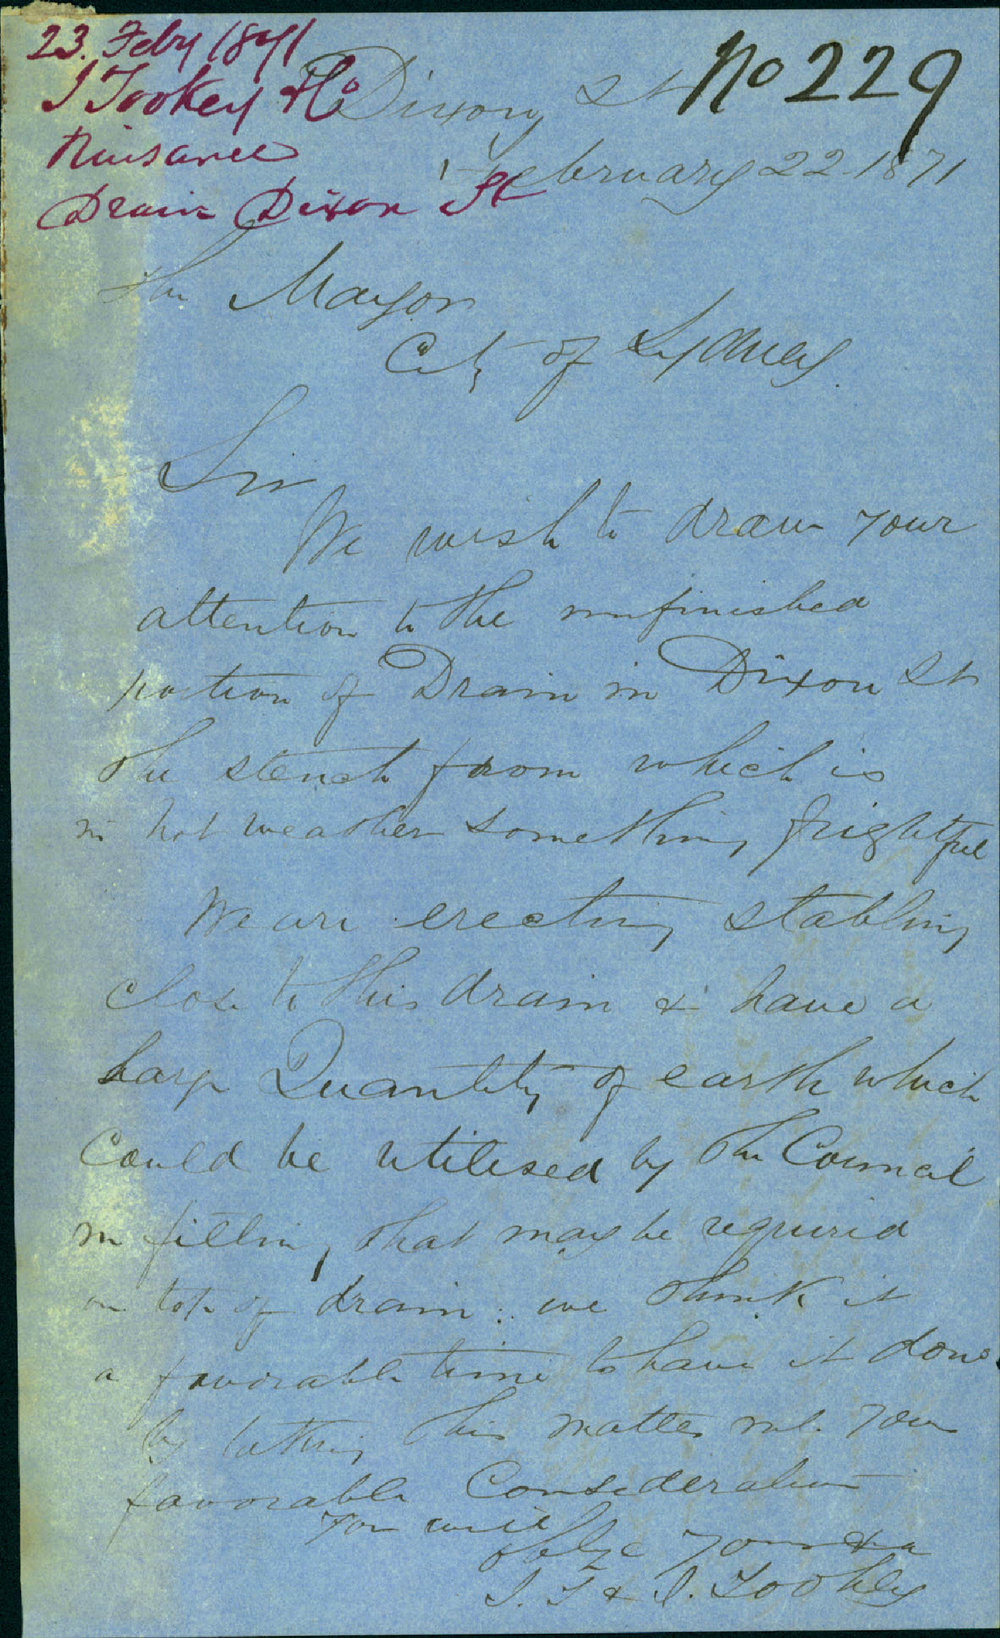 23. Feby 1871
J Tookey & Co
Nuisance
Drain Dixon St
No 229
Dixon St
February 22 1871
The Mayor
City of Sydney
Sir
We wish to draw your
attention to the unfinished
portion of Drain in Dixon St
the stench from which is
in hot weather something frightful
We are erecting stabling
close to this drain & have a
large Quantity of earth which
Could be utilised by the Council
in filling that may be required
on top of drain. we think it
a favorable time to have it done
by taking this matter into your
favorable Consideration
You will
oblige yours &c
J. T & J. Toohey